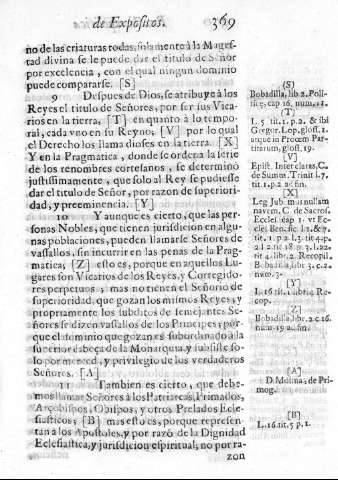 de Expositos. 369
no de las criaturas todas, solamente à la Magestad
divina se le puede dar el titulo de Señor
por excelencia, con el qual ningun dominio
puede compararse. [S]
9 Despues de Dios, se atribuye à los
Reyes el titulo de Señores, por ser sus Vicarios
en la tierra, [T] en quanto à lo temporal,
cada vno en su Reyno; [V] por lo qual
el Derecho los llama dioses en la tierra. [X]
Y en la Pragmatica, donde se ordena la serie
de los renombres cortesanos, se determinò
justissimamente, que solo al Rey se pudiesse
dar el titulo de Señor, por razon de superioridad,
y preeminencia. [Y]
10 Y aunque es cierto, que las personas
Nobles, que tienen jurisdicion en algunas
poblaciones, pueden llamarse Señores de
vassallos, sin incurrir en las penas de la Pragmatica;
[Z] esto es, porque en aquellos Lugares
son Vicarios de los Reyes, y Corregidores
perpetuos, mas no tienen el Señorio de
superioridad, que gozan los mismos Reyes; y
propriamente los subditos de semejantes Señores
se dizen vassallos de los Principes; porque
el dominio que gozan es subordinado à la
superior cabeça de la Monarquia, y subsiste solo
por merced, y privilegio de los verdaderos
Señores. [A]
11 Tambien es cierto, que debemos
llamar Señores à los Patriarcas, Primados,
Arçobispos, Obispos, y otros Prelados Eclesiasticos;
[B] mas esto es, porque representan
à los Apostoles, y por razõ de la Dignidad
Eclesiastica, y jurisdicion espiritual; no por razon
(S)
Bobadilla, lib. 2. Politice,
cap. 16. num. 11.
[T]
L. 5 tit. 1. p. 2. & ibi
Gregor. Lop. glos. 1.
atque in Proœm. Partitarum,
glos. 19.
[V]
Epist. Inter claras, C.
de Summ. Trinit. l. 7.
tit. 1. p. 2. ad fin.
[X]
Leg. Jubemus nullam
navem, C. de Sacros.
Eccles.
Recopil.
Bobadilla, lib. 3. c. 2.
num. 3.
[Y]
L. 16. tit. 1. lib. 4. Recop.
[Z]
Bobadilla, lib. 2. c. 16.
num. 19. ad fin.
[A]
D. Molina, de Primog.
[B]
L. 16. tit. 5. p. 1.